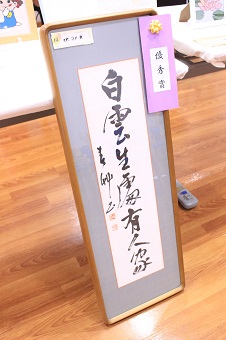 優秀賞
白雲生處有人家